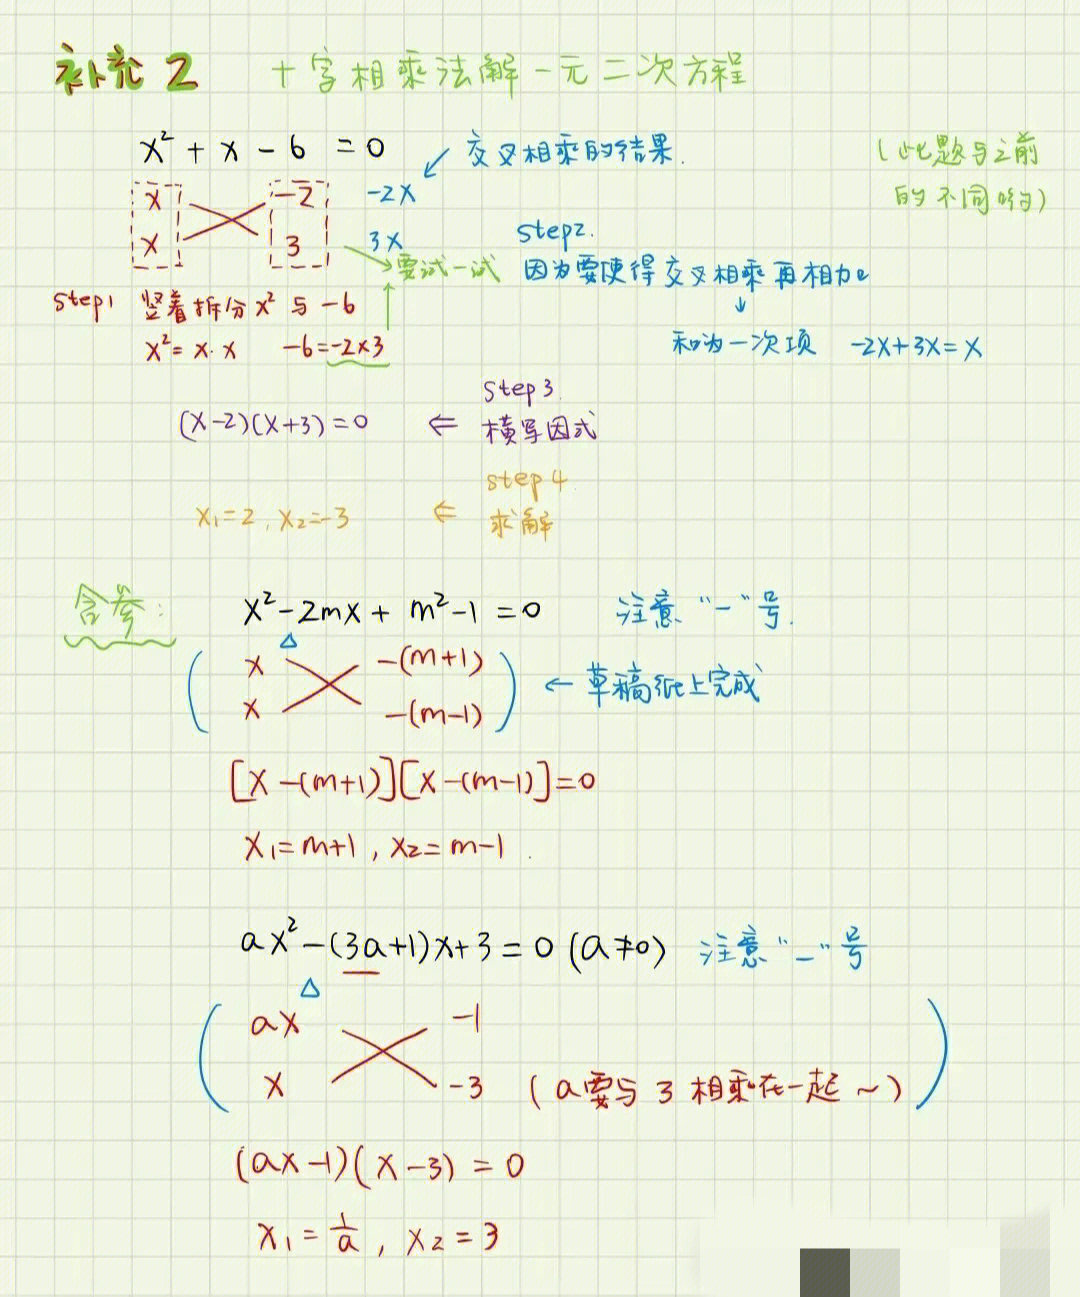 补充2 十字相乘法解一元二次方程
x²+x-6=0 交叉相乘的结果. (此题与之前
x -2 -2x 的不同哟)
x 3 3x step2.
要试一试 因为要使得交叉相乘再相加
step1 竖着拆分x²与-6
x²=x·x -6=-2×3 和为一次项 -2x+3x=x
step3.
(x-2)(x+3)=0 ⇐ 横写因式
step4.
x₁=2, x₂=-3 ⇐ 求解
含参: x²-2mx+m²-1=0 注意"-"号.
x -(m+1)
x -(m-1) ← 草稿纸上完成
[x-(m+1)][x-(m-1)]=0
x₁=m+1, x₂=m-1.
ax²-(3a+1)x+3=0 (a≠0) 注意"-"号
ax -1
x -3 (a要与3相乘在一起~)
(ax-1)(x-3)=0
x₁=1/a, x₂=3